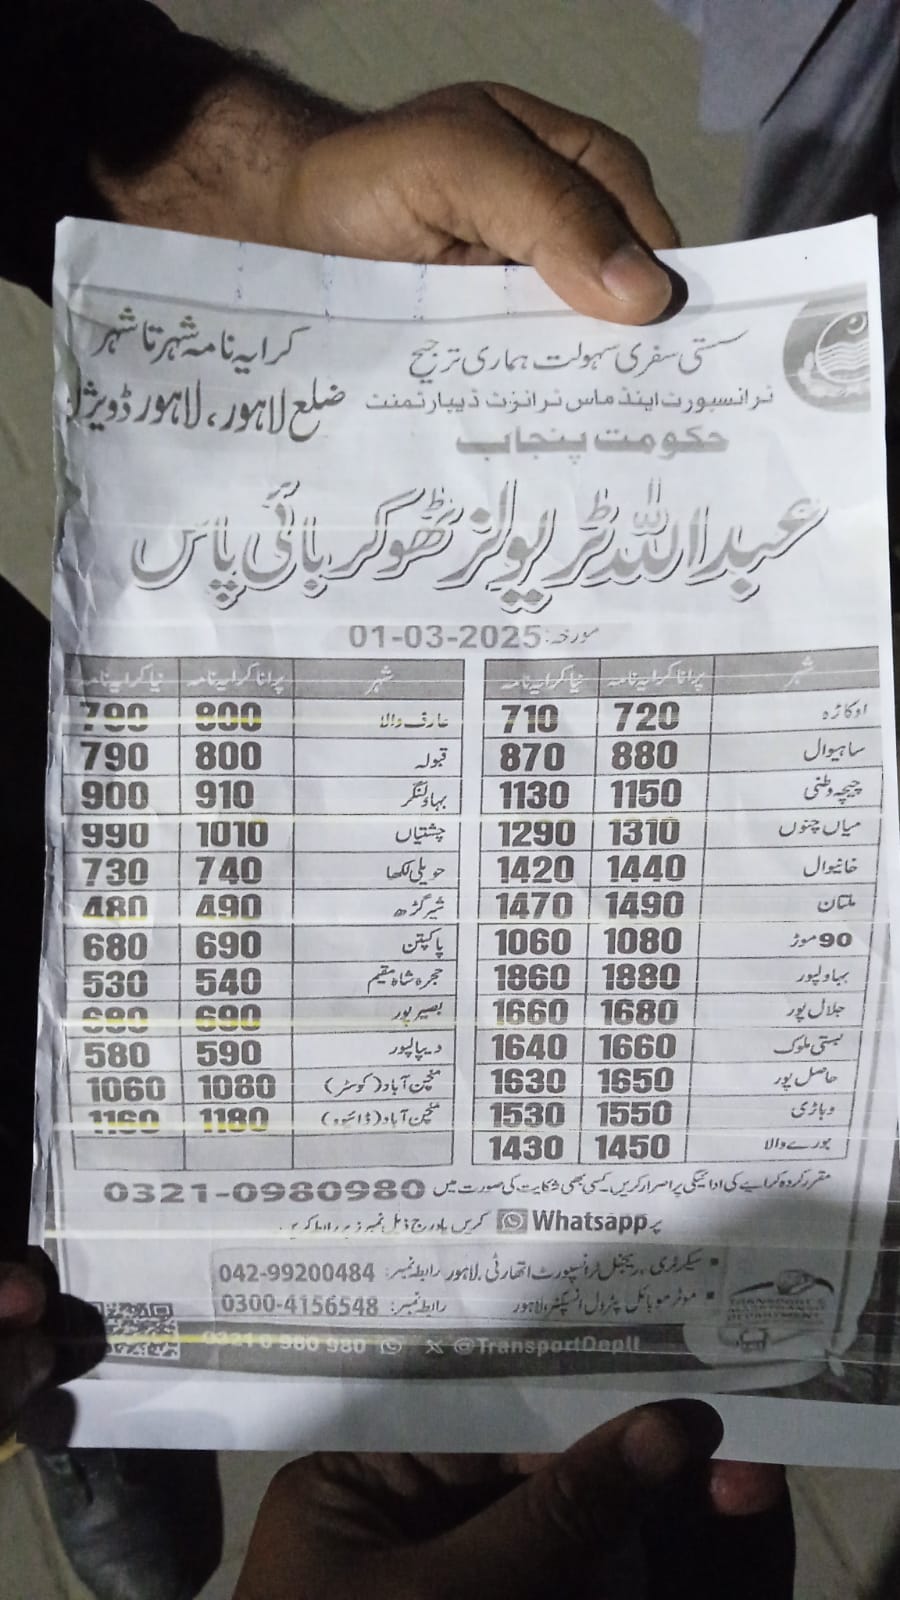 سستی سفری سہولت ہماری ترجیح
ٹرانسپورٹ اینڈ ماس ٹرانزٹ ڈیپارٹمنٹ
حکومت پنجاب
کرایہ نامہ شہر تا شہر
ضلع لاہور، لاہور ڈویژن
عبداللہ ٹریولز ٹھوکر بائی پاس
مورخہ: 01-03-2025
شہر پرانا کرایہ نامہ نیا کرایہ نامہ
اوکاڑہ 720 710
ساہیوال 880 870
چیچہ وطنی 1150 1130
میاں چنوں 1310 1290
خانیوال 1440 1420
ملتان 1490 1470
90 موڑ 1080 1060
بہاولپور 1880 1860
جلال پور 1680 1660
بستی ملوک 1660 1640
حاصل پور 1650 1630
وہاڑی 1550 1530
بورے والا 1450 1430
شہر پرانا کرایہ نامہ نیا کرایہ نامہ
عارف والا 800 790
قبولہ 800 790
بہاولنگر 910 900
چشتیاں 1010 990
حویلی لکھا 740 730
شیر گڑھ 490 480
پاکپتن 690 680
حجرہ شاہ مقیم 540 530
بصیر پور 690 680
دیپالپور 590 580
منچن آباد (کوسٹر) 1080 1060
منچن آباد (ڈائیوو) 1180 1160
مقرر کردہ کرایے کی ادائیگی پر اصرار کریں۔ کسی بھی شکایت کی صورت میں 0321-0980980
پر Whatsapp کریں یا درج ذیل نمبرز پر رابطہ کریں۔
• سیکرٹری، ریجنل ٹرانسپورٹ اتھارٹی، لاہور رابطہ نمبر: 042-99200484
• موٹر موبائل پٹرول انسپکٹر، لاہور رابطہ نمبر: 0300-4156548
TRANSPORT &
MASS TRANSIT
DEPARTMENT
0321 0 980 980 @TransportDeptt